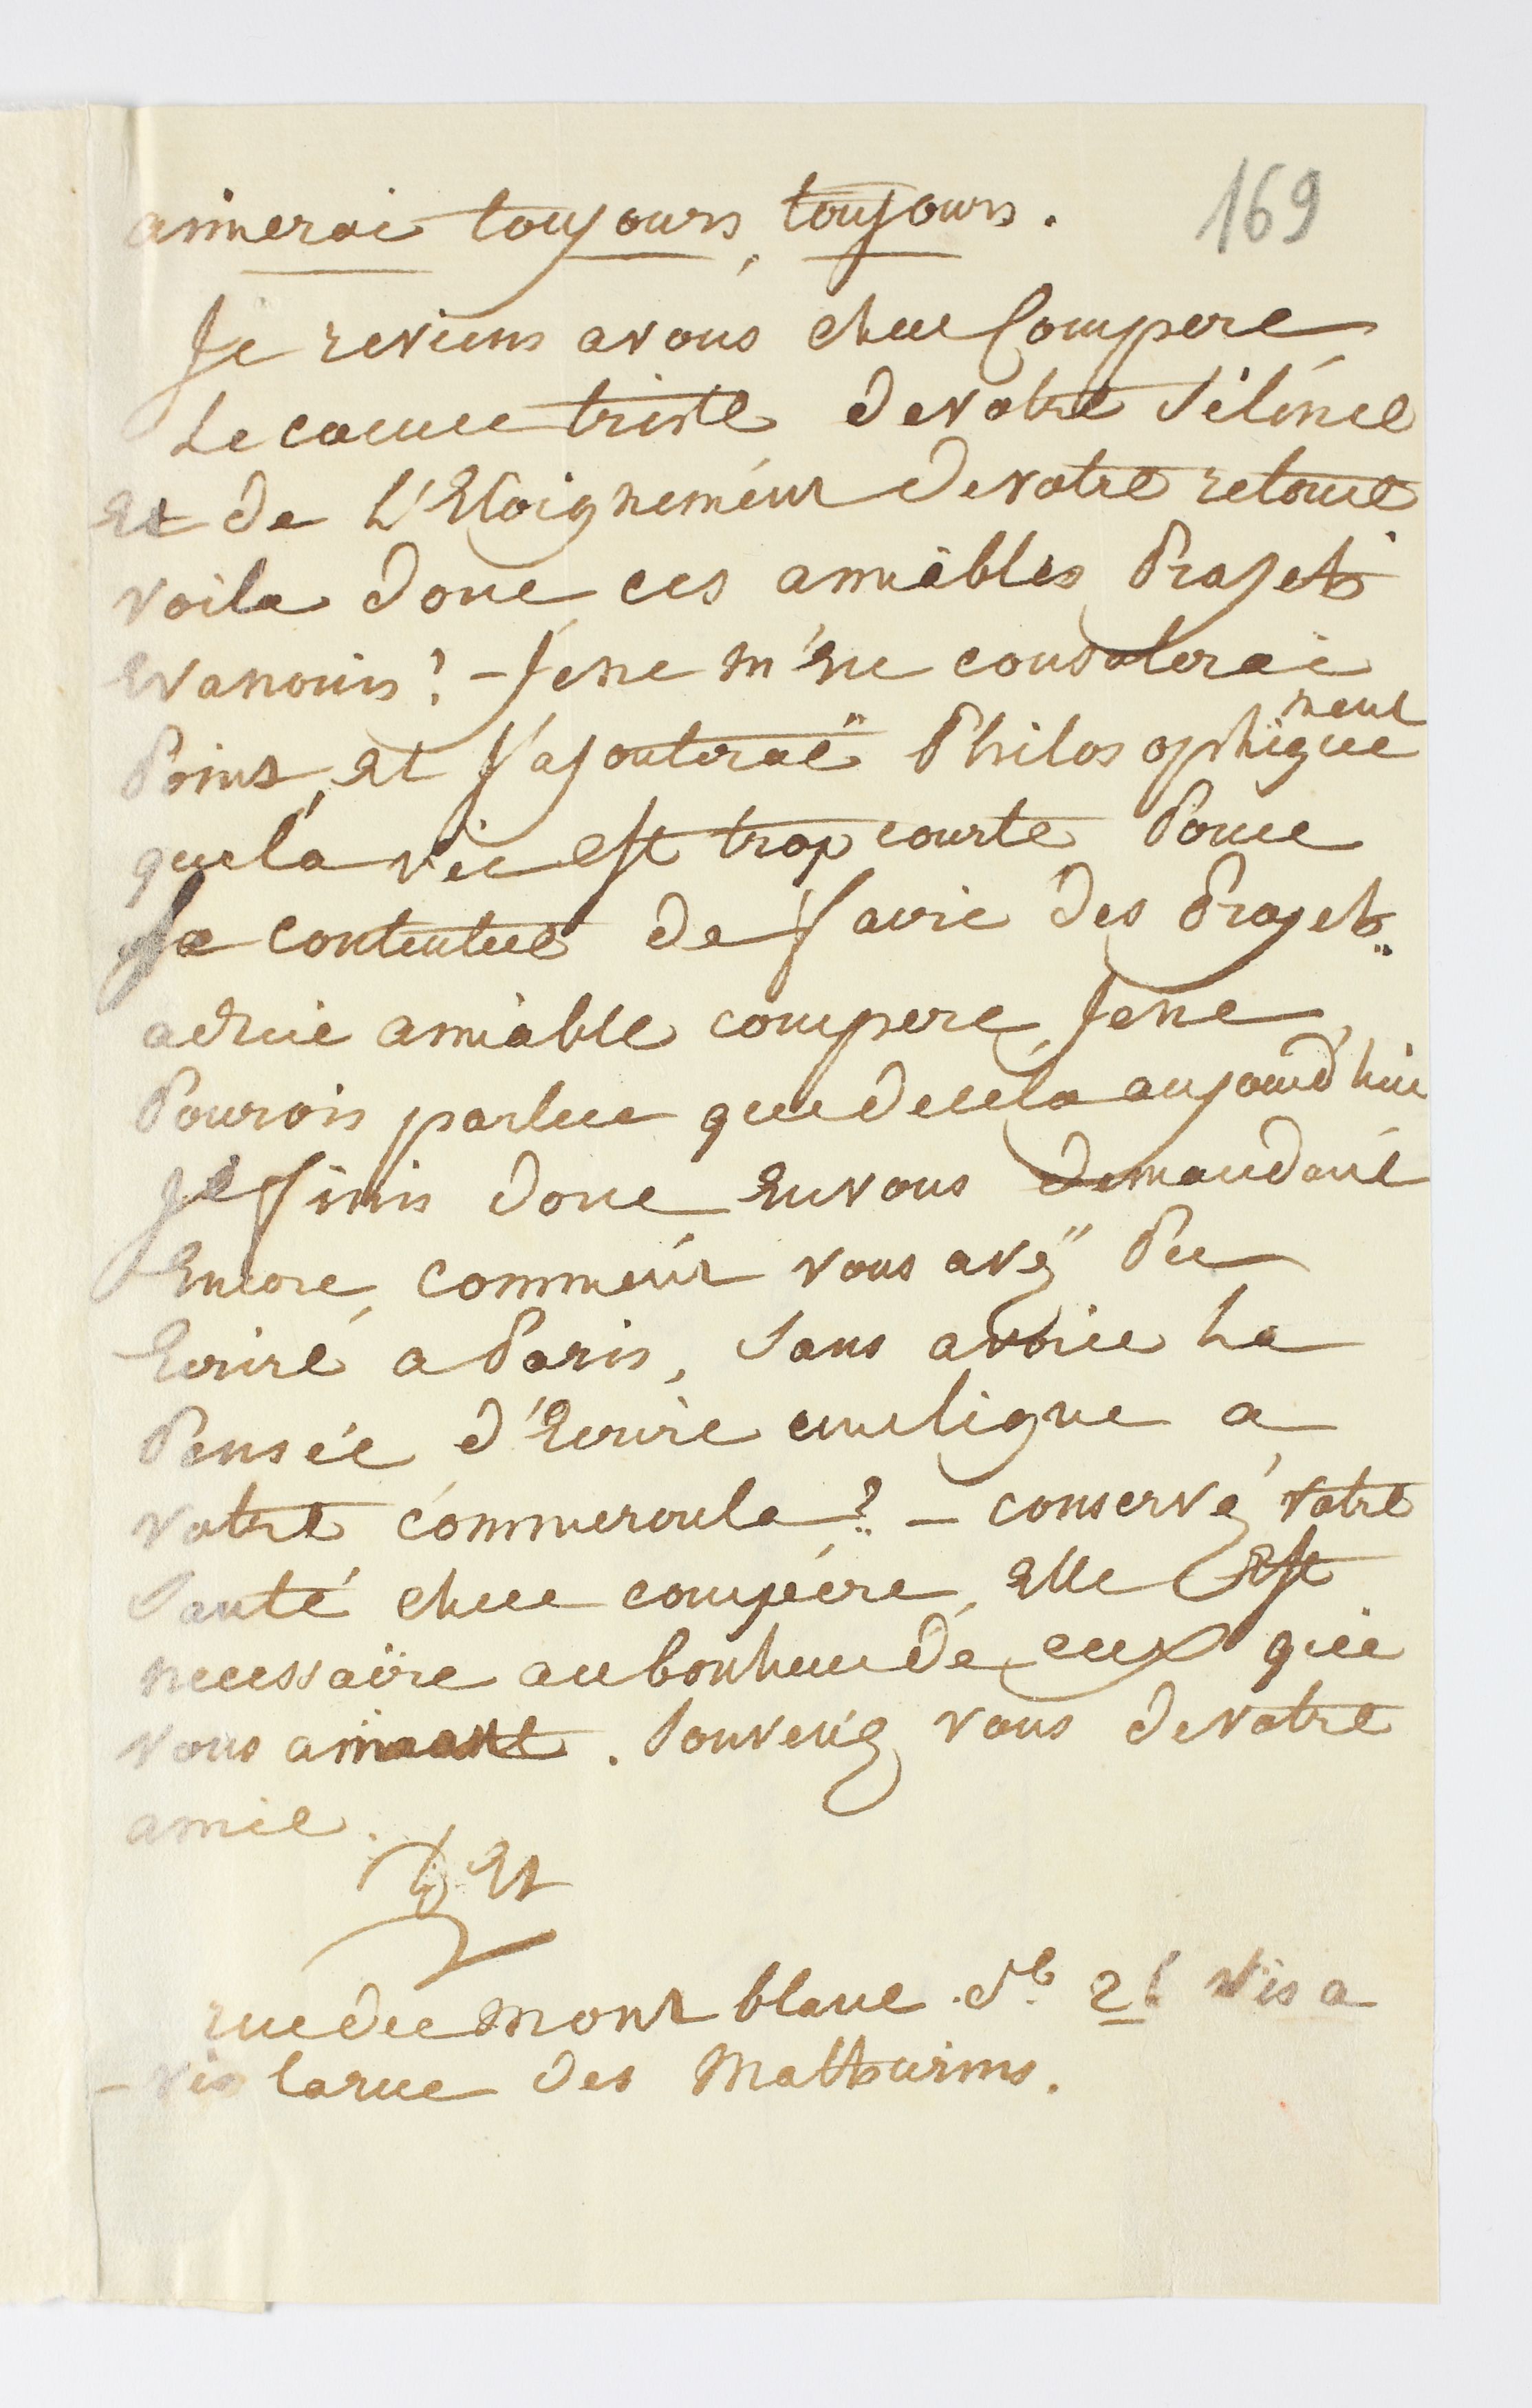 aimerai toujours, toujours.
169
Je reviens a vous cher Compere
Le coeur triste de votre silence
Et de L'Eloignement de votre retour
voila donc ces aimables Projets
Evanouis? – Je ne m'en consolerai
Point, et J'ajouterai Philosophiquement
que la vie est trop courte Pour
se contenter de faire des Projets..
adieu aimable compere, Je ne
Pourois parler que de cela aujourd'hui
Je finis donc En vous demandant
Encore, comment vous avez Pu
Ecrire a Paris, sans avoir La
Pensée d'Ecrire une ligne a
votre commeroula? – conservez votre
santé cher compère, Elle Est
necessaire au bonheur de ceux qui
vous aiment. souvenez vous de votre
amie.
rue du Mont blanc No 26 vis a
– vis la rue des Mathurins.